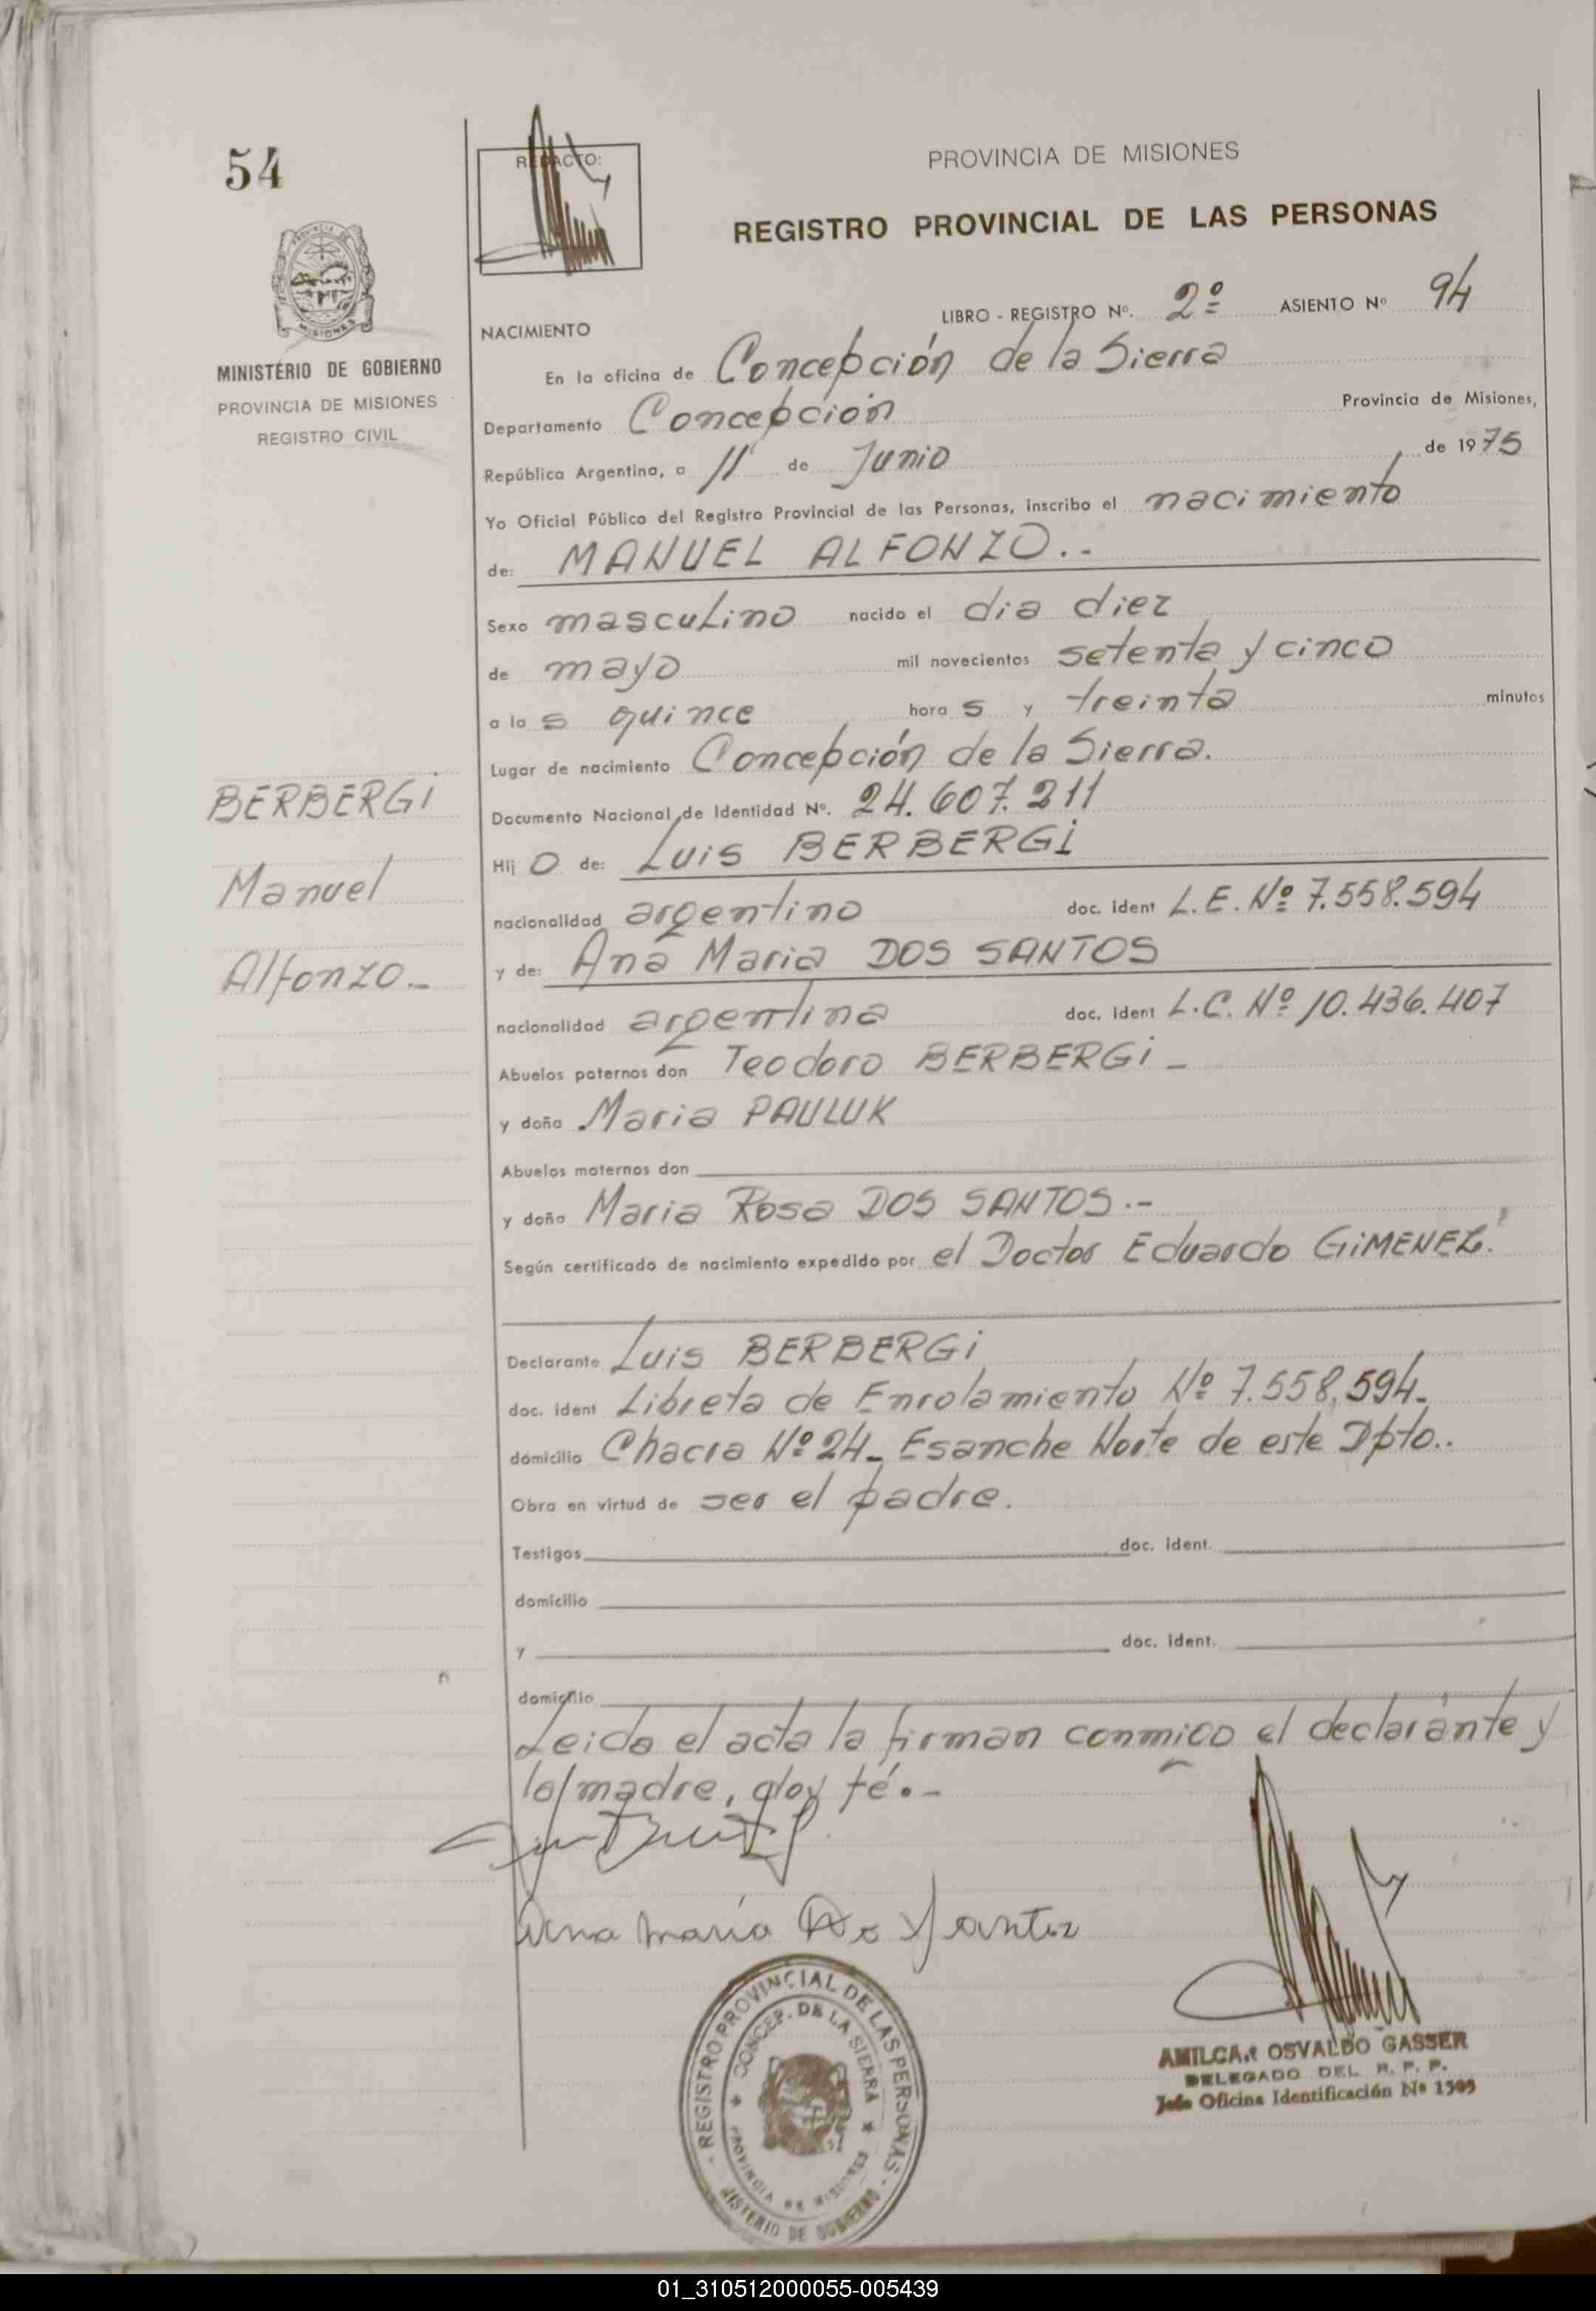 54
REDACTO:
PROVINCIA DE MISIONES
REGISTRO PROVINCIAL DE LAS PERSONAS
LIBRO - REGISTRO Nº. 2º ASIENTO Nº 94
NACIMIENTO
MINISTERIO DE GOBIERNO
PROVINCIA DE MISIONES
REGISTRO CIVIL
En la oficina de Concepción de la Sierra
Departamento Concepción Provincia de Misiones,
República Argentina, a 11 de Junio de 1975
Yo Oficial Público del Registro Provincial de las Personas, inscribo el nacimiento
de: MANUEL ALFONZO.-
Sexo masculino nacido el dia diez
de mayo mil novecientos setenta y cinco
a la s quince hora s y treinta minutos
Lugar de nacimiento Concepción de la Sierra.
Documento Nacional de Identidad Nº. 24.607.211
Hij o de: Luis BERBERGi
nacionalidad argentino doc. ident L.E. Nº 7.558.594
y de: Ana Maria DOS SANTOS
nacionalidad argentina doc. ident L.C. Nº 10.436.407
Abuelos paternos don Teodoro BERBERGi -
y doña Maria PAULUK
Abuelos maternos don
y doña Maria Rosa DOS SANTOS.-
Según certificado de nacimiento expedido por el Doctor Eduardo GiMENEZ.
BERBERGi
Manuel
Alfonzo.-
Declarante Luis BERBERGi
doc. ident Libreta de Enrolamiento Nº 7.558.594-
domicilio Chacra Nº 24- Esanche Norte de este Dpto..
Obra en virtud de ser el padre.
Testigos doc. ident.
domicilio
y doc. ident.
domicilio
Leida el acta la firman conmigo el declarante y
la madre, doy fé.-
Ana maria Do Santos
REGISTRO PROVINCIAL DE LAS PERSONAS
CONCEP. DE LA SIERRA
PROVINCIA DE MISIONES
MINISTERIO DE GOBIERNO
AMILCAR OSVALDO GASSER
DELEGADO DEL R. P. P.
Jefe Oficina Identificación Nº 1505
01_310512000055-005439